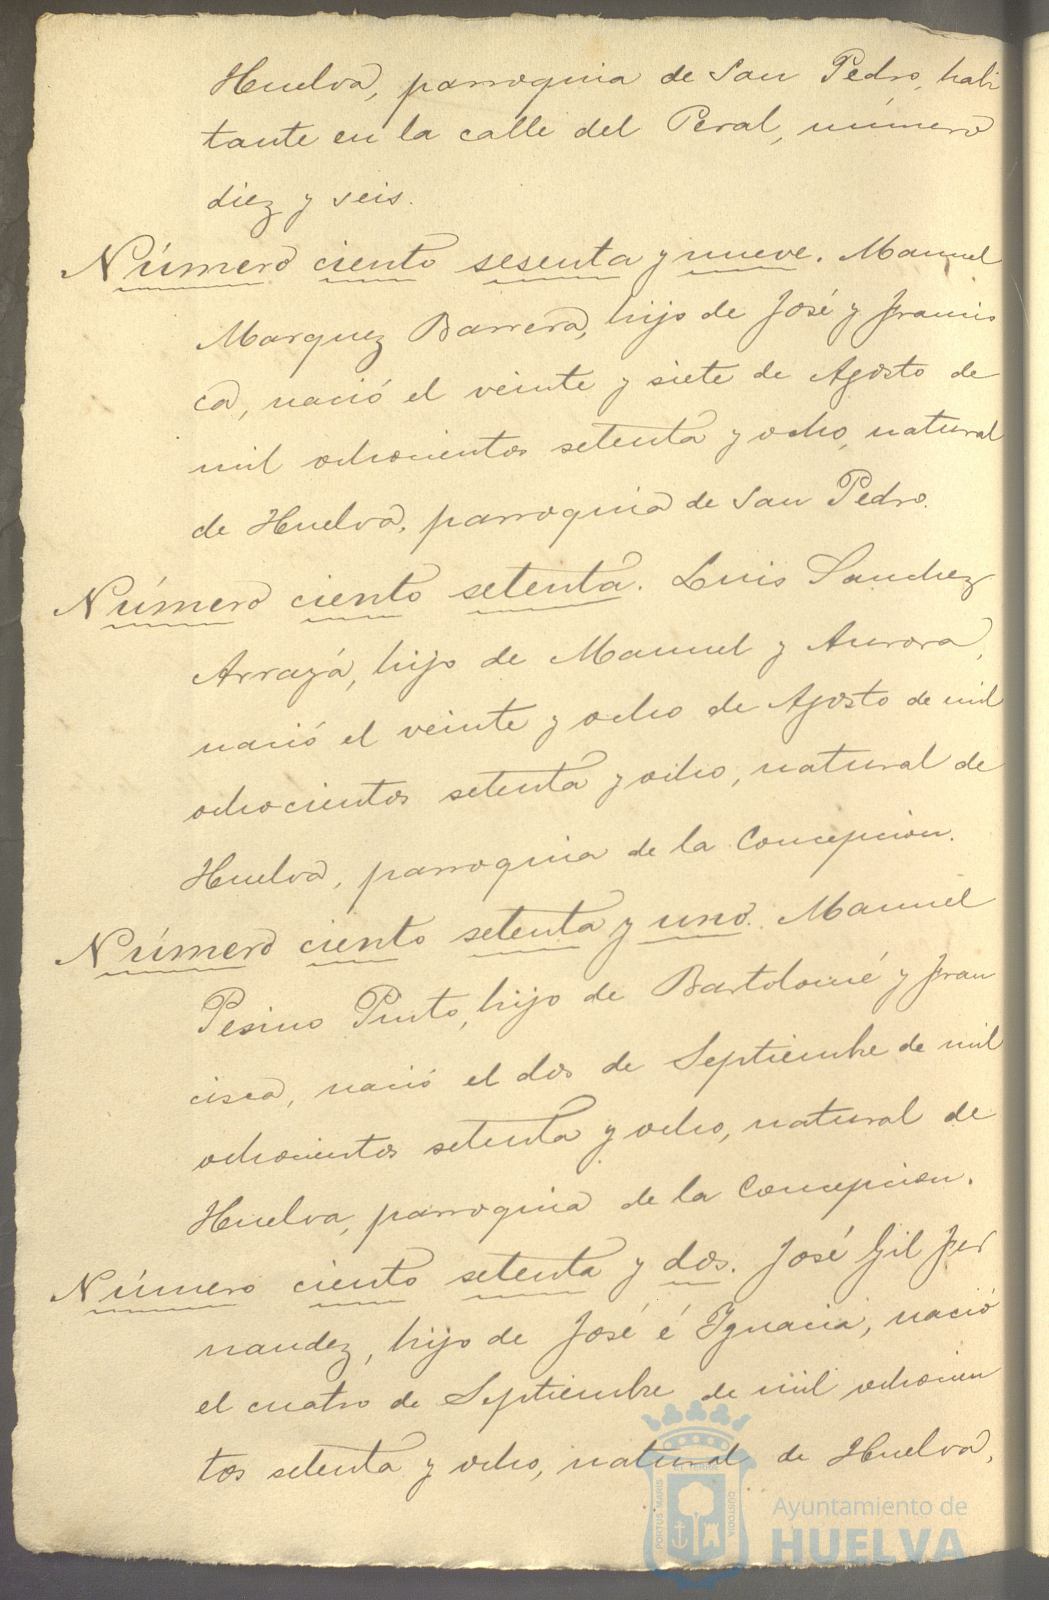 Huelva, parroquia de San Pedro, habi
tante en la calle del Peral, número
diez y seis.
Número ciento sesenta y nueve. Manuel
Marquez Barrera, hijo de José y Francis
ca, nació el veinte y siete de Agosto de
mil ochocientos setenta y ocho, natural
de Huelva, parroquia de San Pedro.
Número ciento setenta. Luis Sanchez
Arrayá, hijo de Manuel y Aurora,
nació el veinte y ocho de Agosto de mil
ochocientos setenta y ocho, natural de
Huelva, parroquia de la Concepcion.
Número ciento setenta y uno. Manuel
Pesino Pinto, hijo de Bartolomé y Fran
cisca, nació el dos de Septiembre de mil
ochocientos setenta y ocho, natural de
Huelva, parroquia de la Concepcion.
Número ciento setenta y dos. José Gil Fer
nandez, hijo de José é Ygnacia, nació
el cuatro de Septiembre de mil ochocien
tos setenta y ocho, natural de Huelva,
PORTUS MARIS
CUSTODIA
Ayuntamiento de
HUELVA